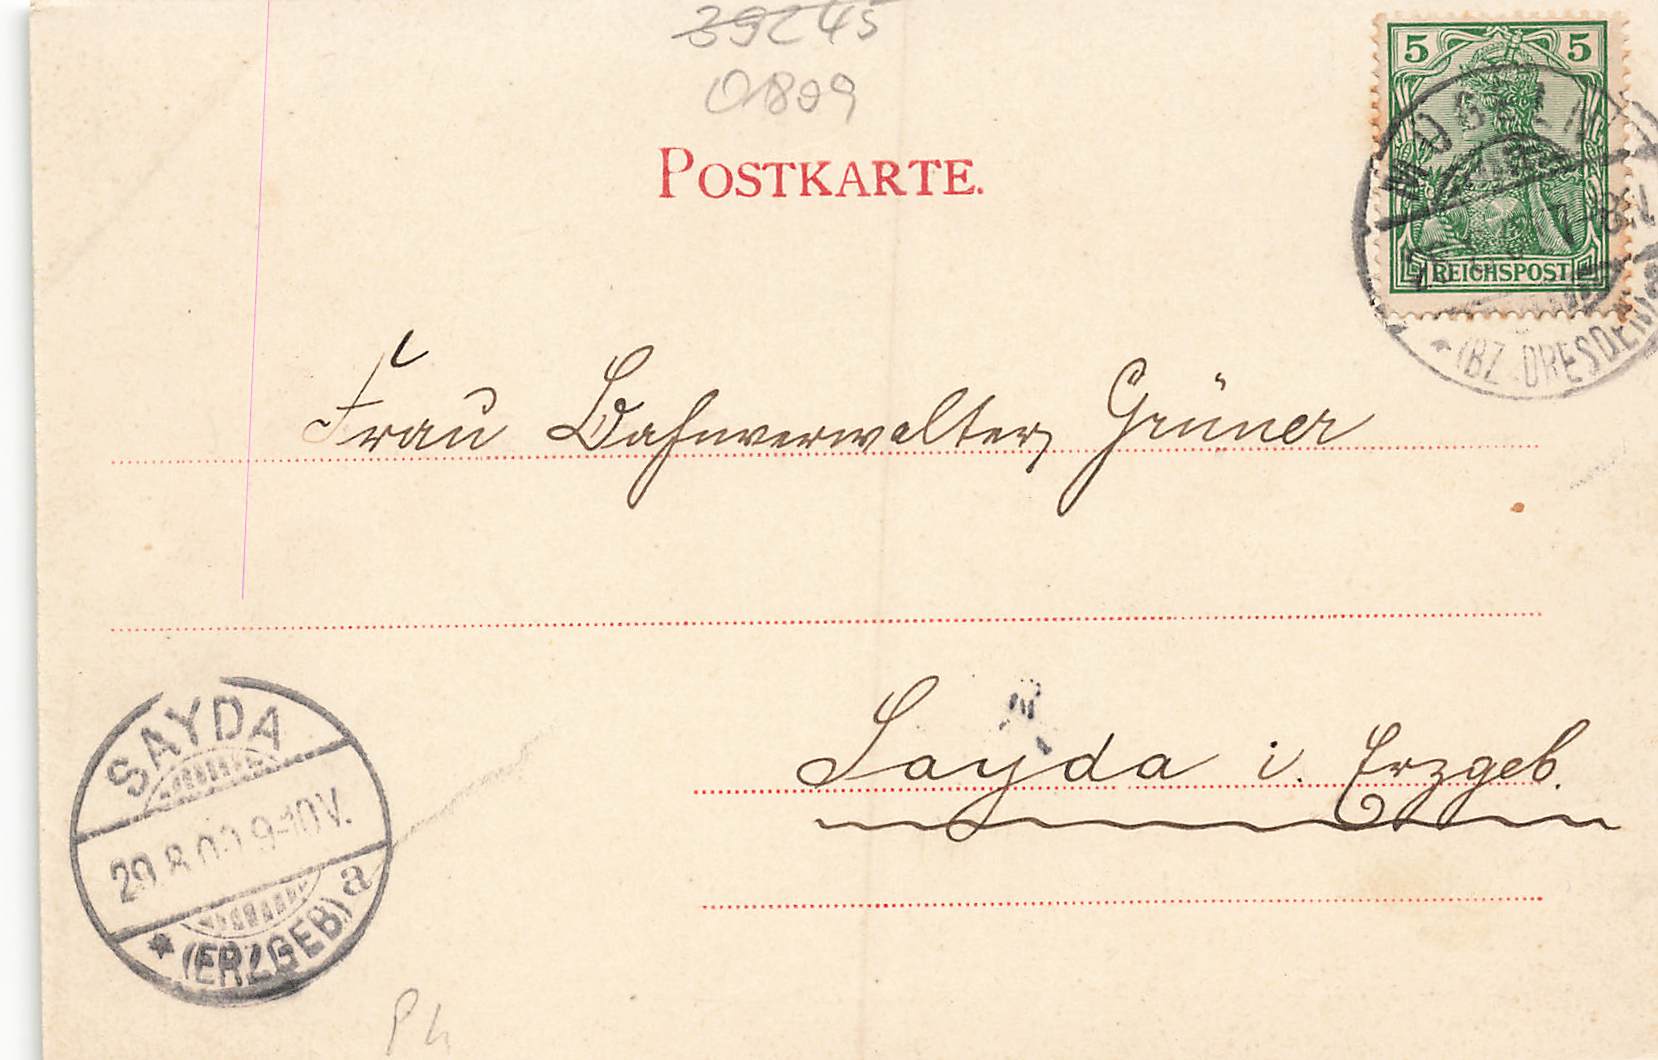 39245
01809
POSTKARTE.
5 5
REICHSPOST
MÜGELN
(BZ. DRESDEN) a
Frau Bahnverwalter Grüner
Sayda i. Erzgeb.
SAYDA
29.8.00.9-10V.
* (ERZGEB) a